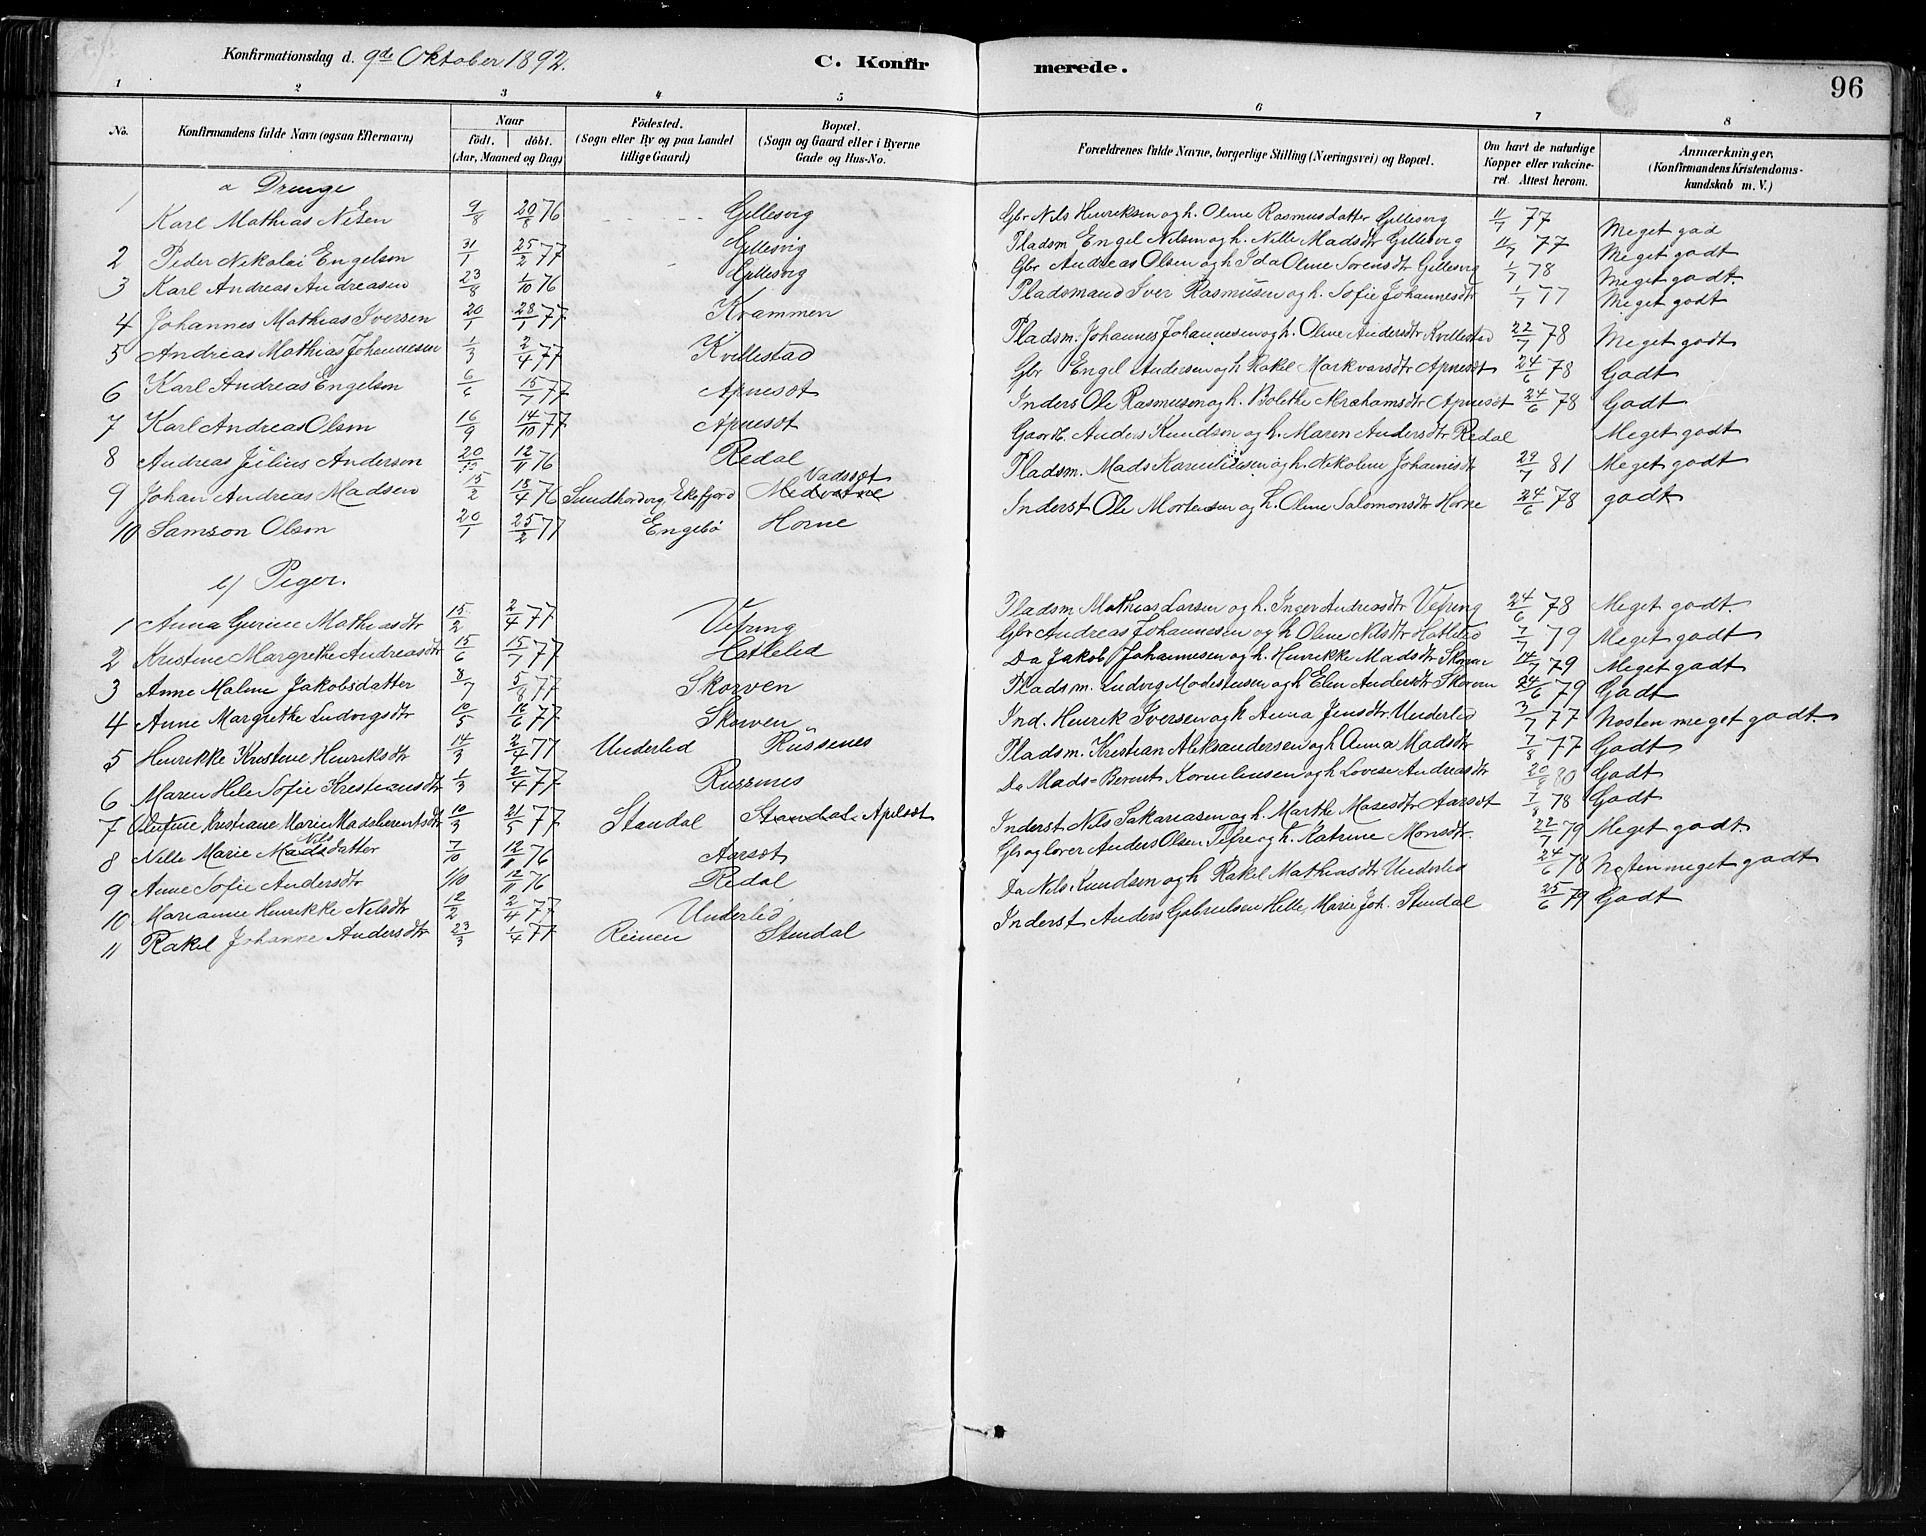 Konfirmationsdag d. 9de Oktober 1892.
C. Konfirmerede.
96
1 2 3 4 5 6 7 8
No.
Konfirmandens fulde Navn (ogsaa Efternavn)
Naar
födt. döbt.
(Aar, Maaned og Dag)
Födested.
(Sogn eller By og paa Landet tillige Gaard)
Bopæl.
(Sogn og Gaard eller i Byerne Gade og Hus-No.
Forældrenes fulde Navne, borgerlige Stilling (Næringsvei) og Bopæl.
Om havt de naturlige Kopper eller vakcineret. Attest herom.
Anmærkninger.
(Konfirmandens Kristendomskundskab m. V.)
a Drenge
1 Karl Mathias Nilsen 9/8 20/8 76 Gillesvig Gbr Nils Henriksen og h. Oline Rasmusdatter Gillesvig 11/7 77 Meget god
2 Peder Nikolai Engelsen 31/1 25/2 77 Gillesvig Pladsm Engel Nilsen og h. Nille Madsdtr Gillesvig 11/7 77 Meget godt
3 Karl Andreas Andreasen 23/8 1/10 76 Gillesvig Gbr Andreas Olsen og h Ida Oline Sørensdtr Gillesvig 1/7 78 Meget godt.
4 Johannes Mathias Iversen 20/1 28/1 77 Krammen Pladsmand Iver Rasmusen og h. Sofie Johannesdtr 1/7 77 Meget godt
5 Andreas Mathias Johannesen 1/3 2/4 77 Kvellestad Pladsm. Johannes Johannesen og h. Oline Andersdtr Kvillestad 22/7 78 Meget godt
6 Karl Andreas Engelsen 6/6 15/7 77 Apnesøt Gbr Engel Andersen og h Rakel Markvarsdtr Apnesøt 24/6 78 Godt
7 Karl Andreas Olsen 16/9 14/10 77 Apnesøt Inders Ole Rasmusen og h. Bolethe Abrahamsdtr Apnesøt 24/6 78 Godt
8 Andreas Julius Andersen 20/10 12/11 76 Redal Gaardb. Anders Knudsen og h. Maren Andersdtr Redal Meget godt
9 Johan Andreas Madsen 15/2 18/4 76 Sundhordvig Ekefjord Vadsøt Medvatne Pladsm. Mads Karnelius­sen og h. Nikoline Johannesdtr 29/7 81 Meget godt
10 Samson Olsen 20/1 25/2 77 Engebø Horne Inderst Ole Mortensen og h. Oline Salomonsdtr Horne 24/6 78 godt
b/ Piger.
1 Anna Gurine Mathiasdtr 15/2 2/4 77 Vefring Pladsm Mathias Larsen og h. Inger Andreasdtr Vefring 24/6 78 Meget godt.
2 Kristine Margrethe Andreasdtr 15/6 15/7 77 Hatlelid Gbr Andreas Johannesen og h Oline Nilsdtr Hatlelid 7/7 79 Meget godt
3 Anne Maline Jakobsdatter 8/7 5/8 77 Skorven Do Jakob Johannesen og h. Henrikke Madsdtr Skorven 14/7 79 Meget godt
4 Anne Margrethe Ludvigsdtr 10/5 10/6 77 Skorven Pladsm. Ludvig Modestusen og h Elen Andersdtr Skorven 24/6 79 Godt
5 Henrikke Kristine Henriksdtr 14/3 2/4 77 Underlid Russenes Ind. Henrik Iversen og h Anna Jensdtr Underlid 3/7 77 Næsten meget godt.
6 Maren Hele Sofie Kristiansdtr 1/3 2/4 77 Russenes Pladsm. Kristian Aleksandersen og h Anna Madsdtr 7/8 77 Godt
7 Olufine Kristiane Marie Madsberentsdtr 10/3 21/5 77 Standal Standal. Apelsøt Do Mads-Berent Korneliusen og h Lovise Andreasdtr 20/8 80 Godt
8 Nille Marie Mads Nilsdatter 7/10 12/11 76 Aarsøt Inderst Nils Sakariasen og h. Marthe Mosesdtr Aarsøt 7/8 78 Godt
9 Anne Sofie Andersdtr 1/10 12/11 76 Redal Gbr og lærer Anders Olsen Tefre og h. Katrine Monsdtr. 22/7 79 Meget godt
10 Marianne Henrikke Nilsdtr 12/2 2/4 77 Underlid Do Nils Knudsen og h Rakel Mathiasdtr Underlid 24/6 78 Næsten meget godt
11 Rakel Johanne Andersdtr 23/3 1/4 77 Reinen Stendal Inderst Anders Gabrielsen Hille, Marie Joh. Stendal 25/6 79 Godt